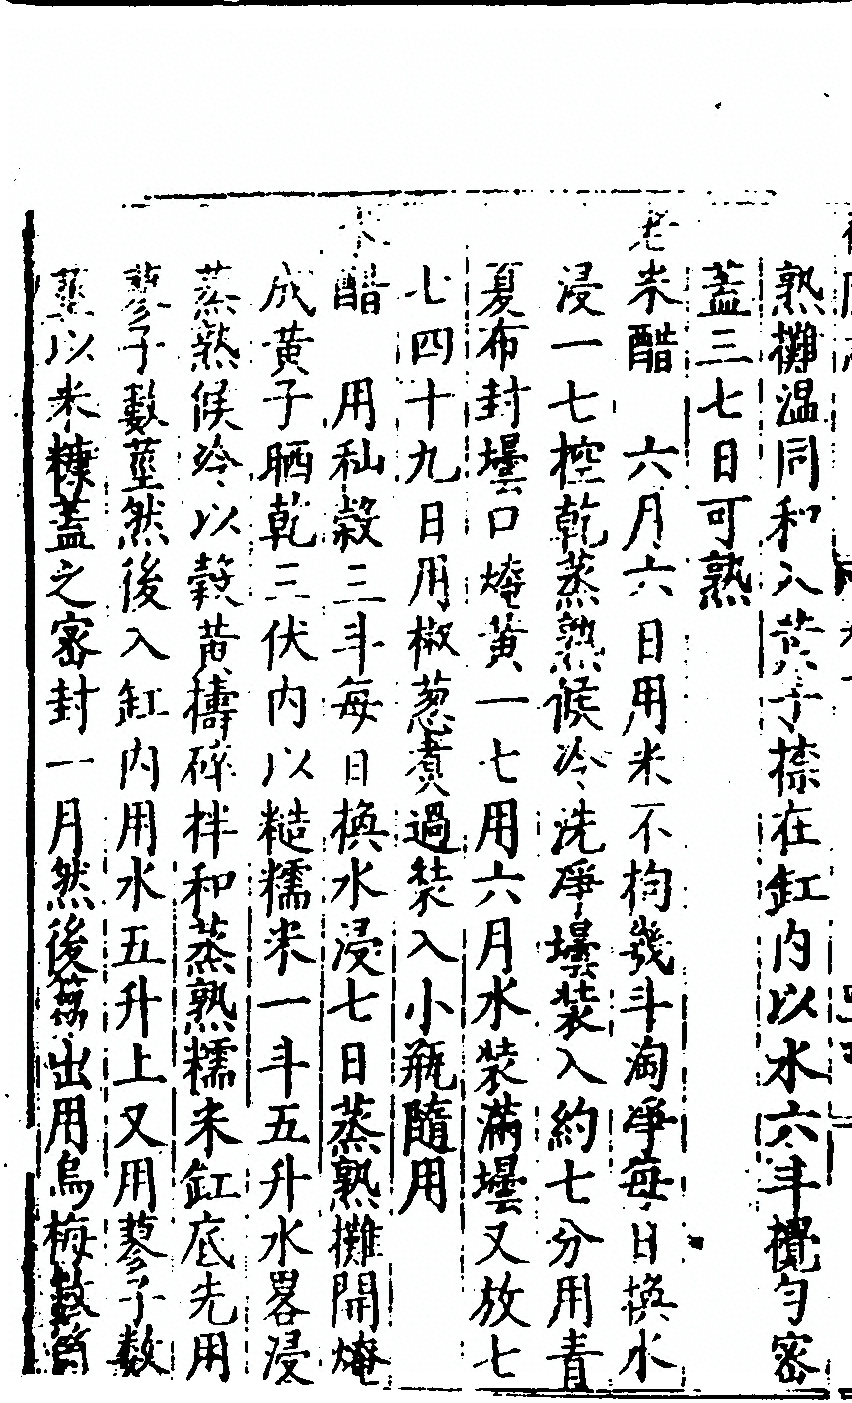 熟攤温同和入黄子捺在缸内以水六斗攪勻密
蓋三七日可熟
老米醋 六月六日用米不拘幾斗淘凈每日換水
浸一七控乾蒸熟候冷洗凈壜裝入約七分用青
夏布封壜口㷈黄一七用六月水裝滿壜又放七
七四十九日用椒葱煮過裝入小瓶隨用
醋 用秈穀三斗每日換水浸七日蒸熟攤開㷈
成黄子晒乾三伏内以糙糯米一斗五升水畧浸
蒸熟候冷以穀黄擣碎拌和蒸熟糯米缸底先用
蓼子數莖然後入缸内用水五升上又用蓼子數
莖以米糠蓋之密封一月然後篘出用烏梅數箇